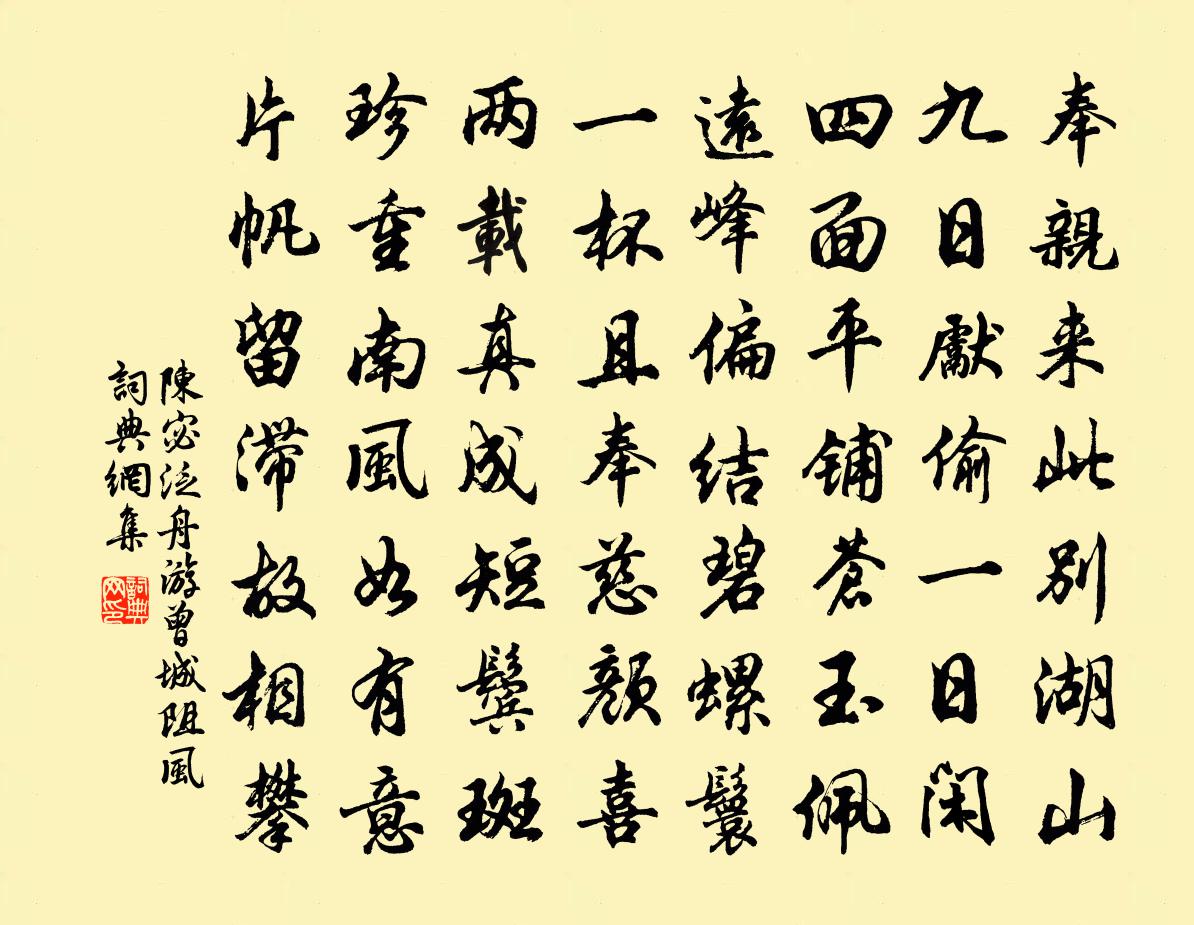 奉親来此別湖山
九日獻偷一日闲
四面平鋪蒼玉佩
遠峰偏结碧螺鬟
一杯且奉慈顏喜
两載真成短鬓斑
珍重南風如有意
片帆留滞故相攀
陳宓泛舟游曾城阻風
詞典網集